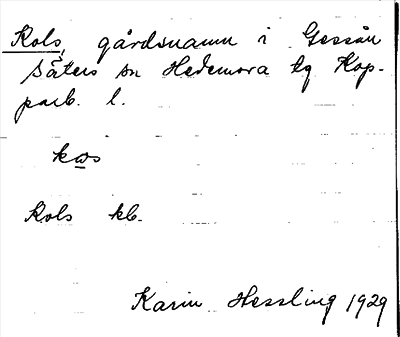 Kols, gårdsnamn i Gessån
Säters sn Hedemora tg Kop-
parb. l.
kωs
Kols kb.
Karin Hessling 1929